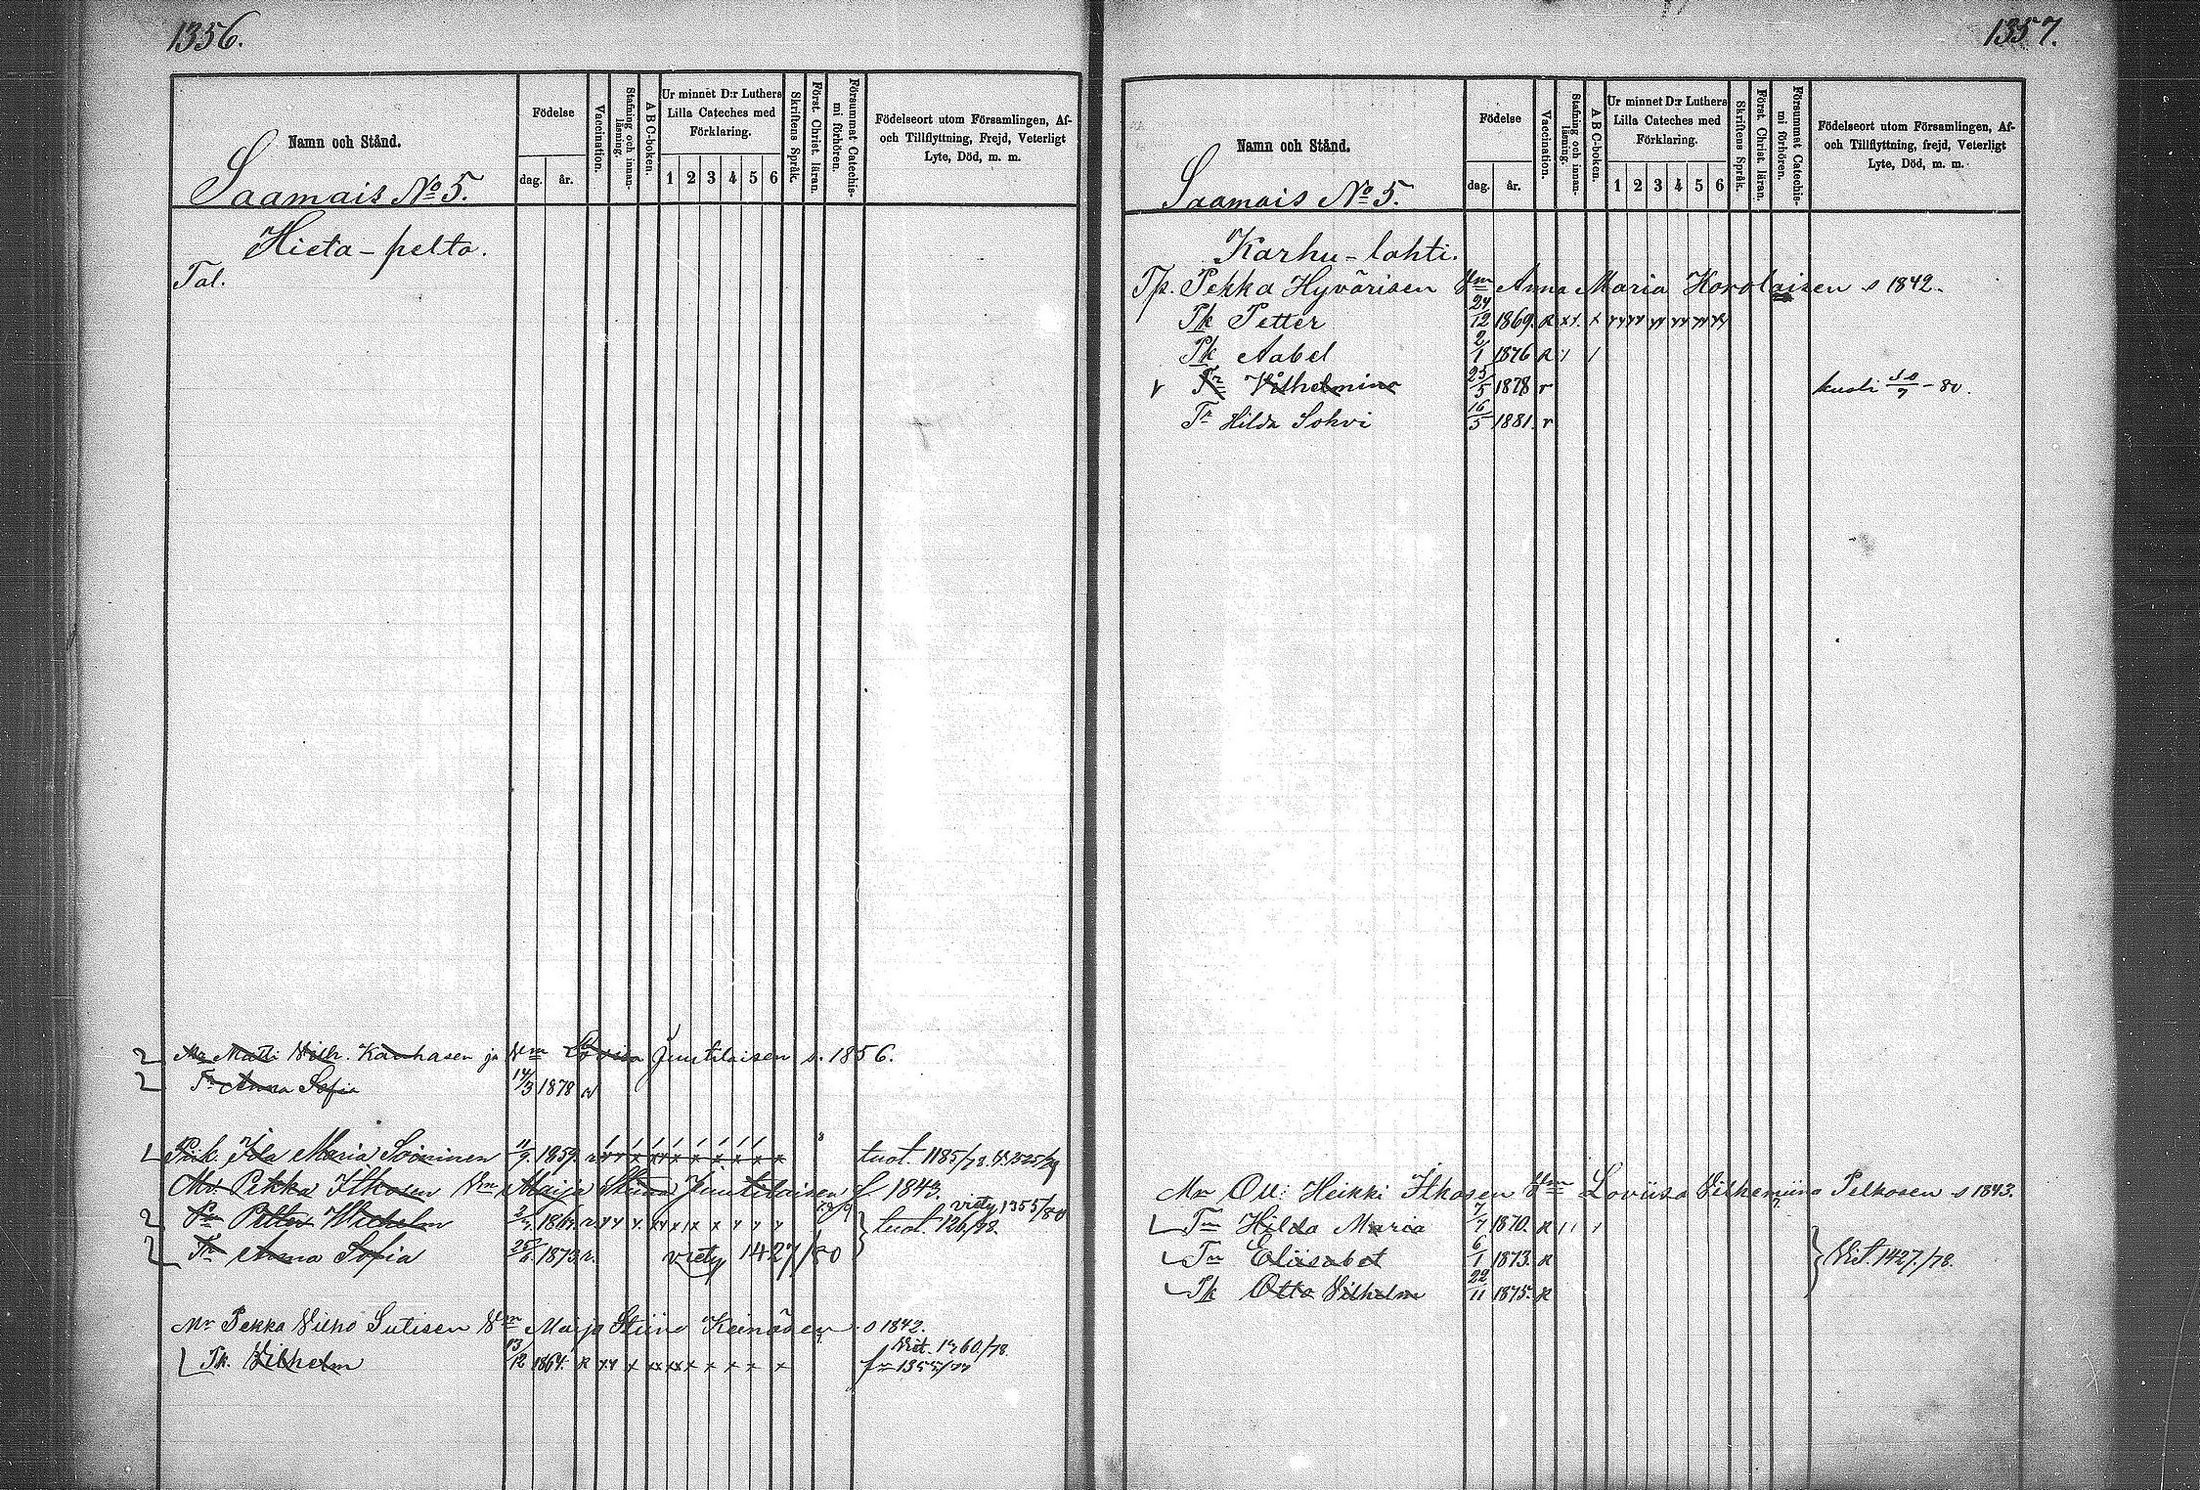 1356.
Namn och Stånd.
Födelse
dag.
år.
Vaccination.
Stafning och innanläsning.
A B C-boken.
Ur minnet D:r Luthers Lilla Cateches med Förklaring.
1 2 3 4 5 6
Skriftens Språk.
Först. Christ. läran.
Försummat Catechismi förhören.
Födelseort utom Församlingen, Af-
och Tillflyttning, Frejd, Veterligt
Lyte, Död, m. m.
Saamais No 5.
Hieta-pelto.
Tal.
Mr Matti Vilh. Kauhasen ja Vm Lovisa Juutilaisen s. 1856.
Tr Anna Sofia 14/3 1878
Piik. Ida Maria Soininen 11/9 1859. tuot. 1185/78.
Mr. Pekka Itkosen Vm Maija Stiina Juutilaisen 1843.
Petter Wilhelm 1861. viety 1355/80 tuot. 126/78.
Anna Sofia 1873 r. viety 1427/80
Mr Pekka Vilho Sutisen Vm Maija Stiina Keinäsen s 1842.
Pk. Vilhelm 13/12 1864. R Viet. 1360/78
1355/77
1357.
Namn och Stånd.
Födelse
dag.
år.
Vaccination.
Stafning och innanläsning.
A B C-boken.
Ur minnet D:r Luthers Lilla Cateches med Förklaring.
1 2 3 4 5 6
Skriftens Språk.
Först. Christ. läran.
Försummat Catechismi förhören.
Födelseort utom Församlingen, Af-
och Tillflyttning, frejd, Veterligt
Lyte, Död, m. m.
Saamais No 5.
Karhu-lahti.
Tp. Pekka Hyvärisen Vm Anna Maria Korolaisen s 1842.
Pk Petter 24/12 1869. R
Pk Aabel 2/1 1876 R
Tr Vilhelmina 25/5 1878 r kuoli 30/7 - 80.
Tr Hilda Sohvi 16/5 1881. r
Mr Olli Heikki Itkosen Vm Loviisa Vilhemiina Pelkosen s 1843.
Tr Hilda Maria 7/7 1870. R
Tr Eliisabet 6/1 1873. R Viet. 1427./78.
Pk Otto Vilhelm 22/11 1875. R